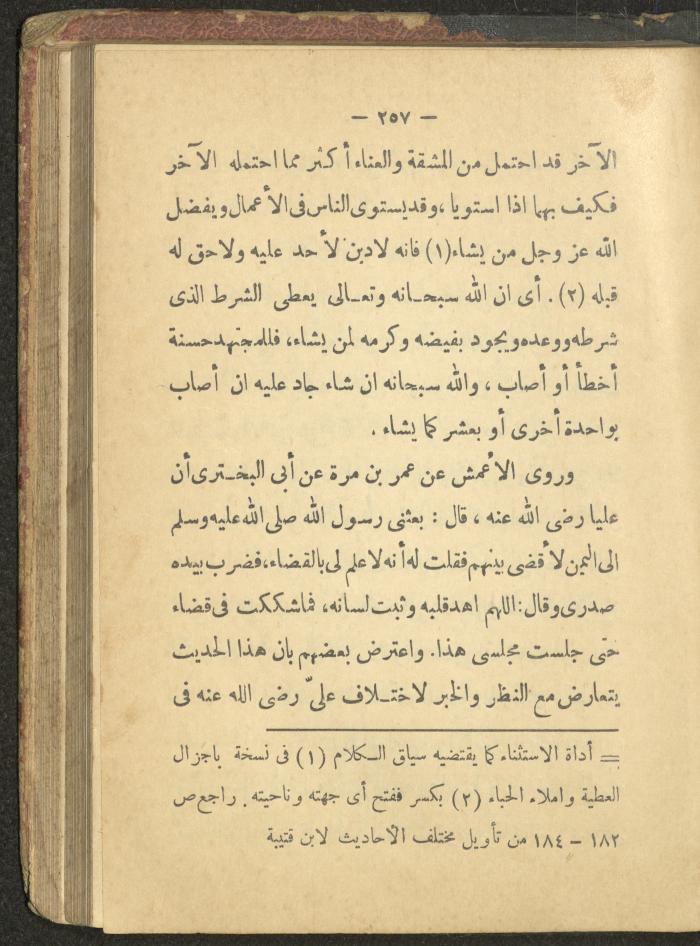 — ٢٥٧ —
الآخر قد احتمل من المشقة والعناء أكثر مما احتمله الآخر
فكيف بهما اذا استويا ، وقد يستوى الناس فى الأعمال ويفضل
الله عز وجل من يشاء (١) فانه لادين لأحد عليه ولاحق له
قبله (٢) . أى ان الله سبحانه وتعالى يعطى الشرط الذى
شرطه ووعده ويجود بفيضه وكرمه لمن يشاء، فللمجتهد حسنة
أخطأ أو أصاب ، والله سبحانه ان شاء جاد عليه ان أصاب
بواحدة أخرى أو بعشر كما يشاء .
وروى الأعمش عن عمر بن مرة عن أبى البخترى أن
عليا رضى الله عنه ، قال : بعثنى رسول الله صلى الله عليه وسلم
الى اليمن لأقضى بينهم فقلت له أنه لاعلم لى بالقضاء، فضرب بيده
صدرى وقال: اللهم اهد قلبه وثبت لسانه، فماشككت فى قضاء
حتى جلست مجلسى هذا. واعترض بعضهم بان هذا الحديث
يتعارض مع النظر والخبر لاختلاف علىّ رضى الله عنه فى
= أداة الاستثناء كما يقتضيه سياق الكلام (١) فى نسخة باجزال
العطية واملاء الحباء (٢) بكسر ففتح أى جهته وناحيته . راجع ص
١٨٢ — ١٨٤ من تأويل مختلف الأحاديث لابن قتيبة